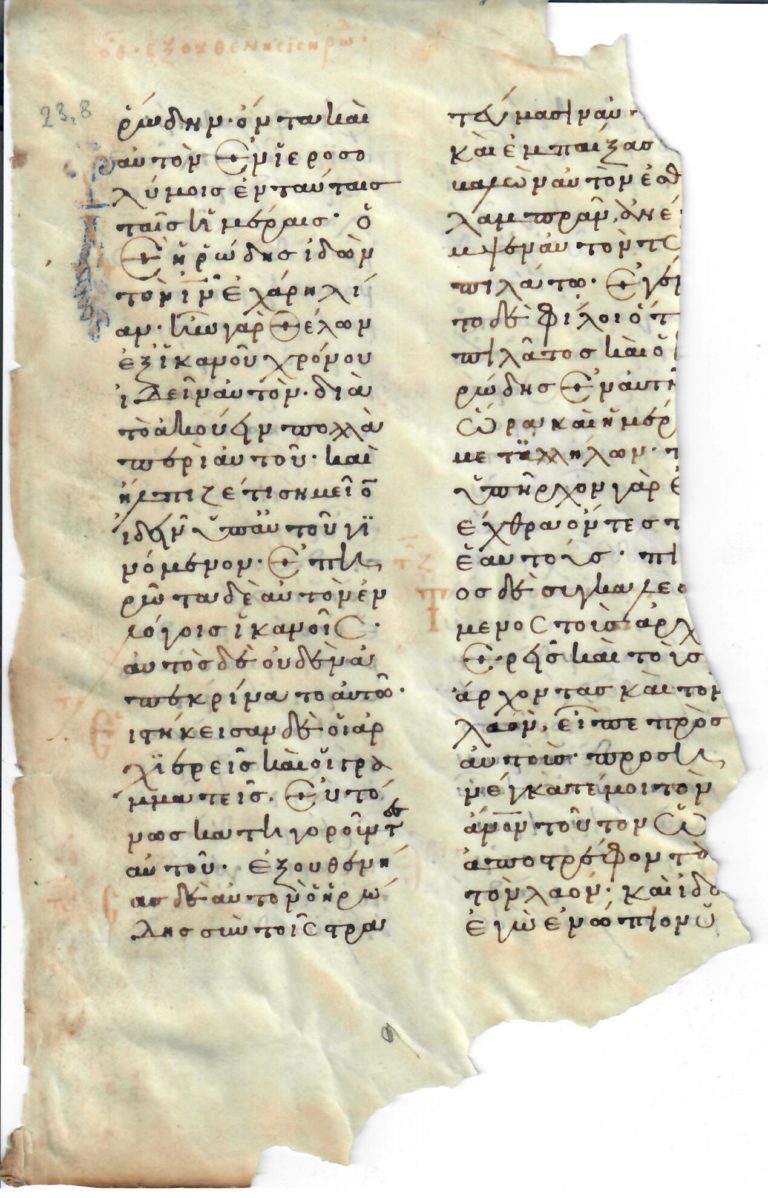 23,8
ρώδην· ὄντα καὶ
αὐτὸν ἐν ἱεροσο
λύμοις ἐν ταύταις
ταῖς ἡμέραις· ὁ
δὲ ἡρώδης ἰδὼν
τὸν ιν̅ ἐχάρη λί
αν· ἦν γὰρ θέλων
ἐξ ἱκανοῦ χρόνου
ἰδεῖν αὐτὸν· διὰ
τὸ ἀκούειν πολλὰ
περὶ αὐτοῦ· καὶ
ἤλπιζέ τι σημεῖο
ἰδεῖν ὑπ αὐτοῦ γι
νόμενον· ἐπη
ρώτα δὲ αὐτὸν ἐν
λόγοις ἱκανοῖς·
αὐτὸς δὲ οὐδὲν ἀ
πεκρίνατο αὐτῶ·
ιστήκεισαν δὲ οἱ ἀρ
χιερεῖς καὶ οἱ γρα
μματεῖς. εὐτό
νως κατηγοροῦντες
αὐτοῦ· ἐξουθενή
ας δὲ αὐτὸν ὁ ἡρώ
δης σὺν τοῖς στρα
τεύμασιν αὐτ
καὶ ἐμπαίξας
καλὼν αὐτὸν ἐσθ
λαμπρὰν, ἀνέ
μψεν αὐτὸν τῶ
πιλάτω· ἐγέν
το δὲ φίλοι ὅ τ
πιλᾶτος καὶ ὁ
ρώδης ἐν αὐτῆ
ὥρα καὶ ἡμέρ
μετ ἀλλήλων· π
ὑπῆρχον γὰρ ἐ
ἔχθρα ὄντες π
ἑαυτοὺς· πι
ος δὲ συγκαλεσ
μενος τοὺς ἀρχ
ερεῖς καὶ τοὺς
ἄρχοντας καὶ τὸν
λαὸν, εἶπε πρὸς
αὐτοὺς· προση
νέγκατέ μοι τὸν
ἀνον̅ τοῦτον ὡ
ἀποστρέφοντα
τὸν λαόν· καὶ ἰδο
ἐγὼ ἐνώπιον ὑ